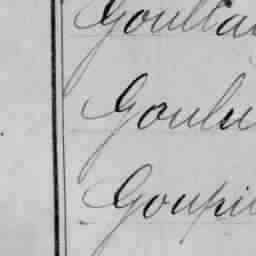 Goulla
Goulu
Goupi